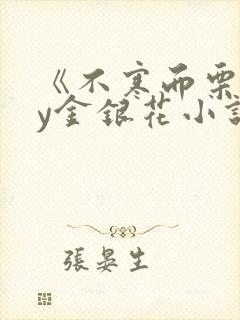 《不寒而栗
y金銀花小說
張晏生